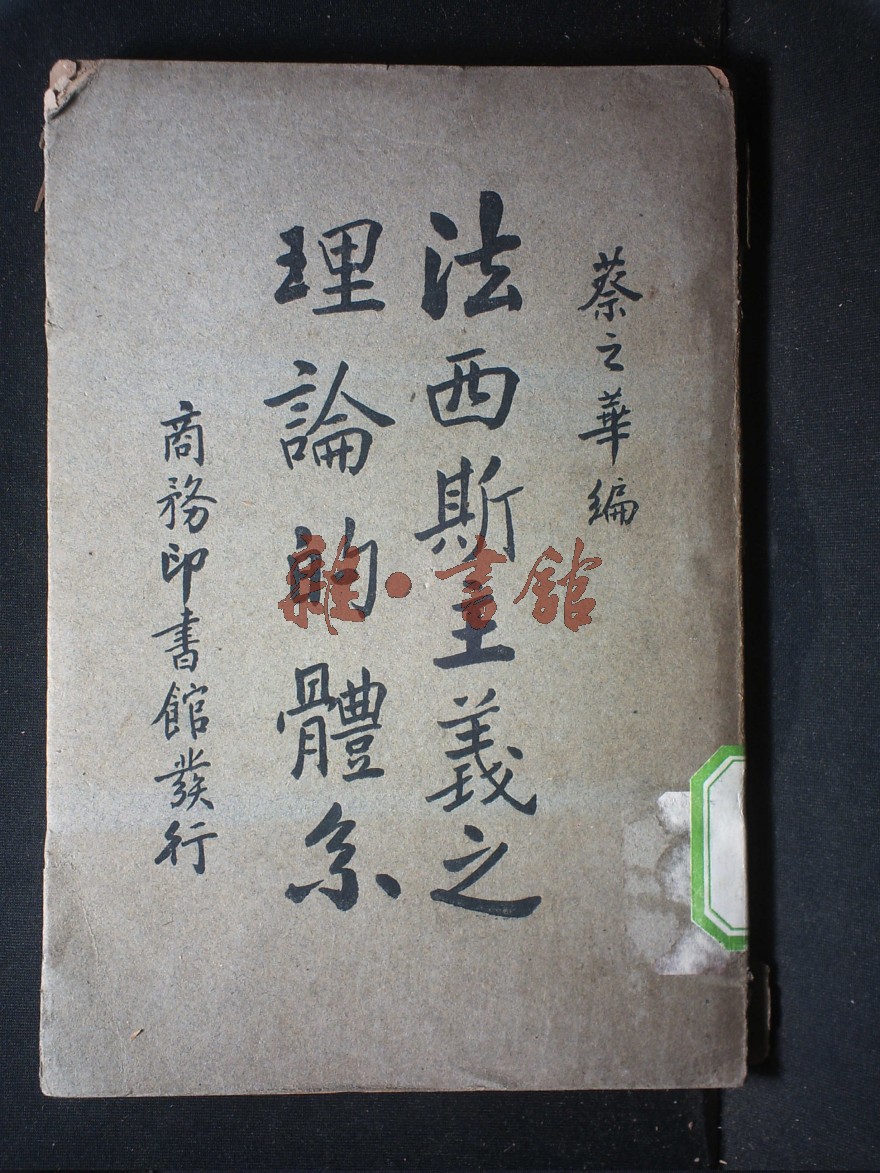 蔡之華編
法西斯主義之
理論的體系
商務印書館發行
雜·書館